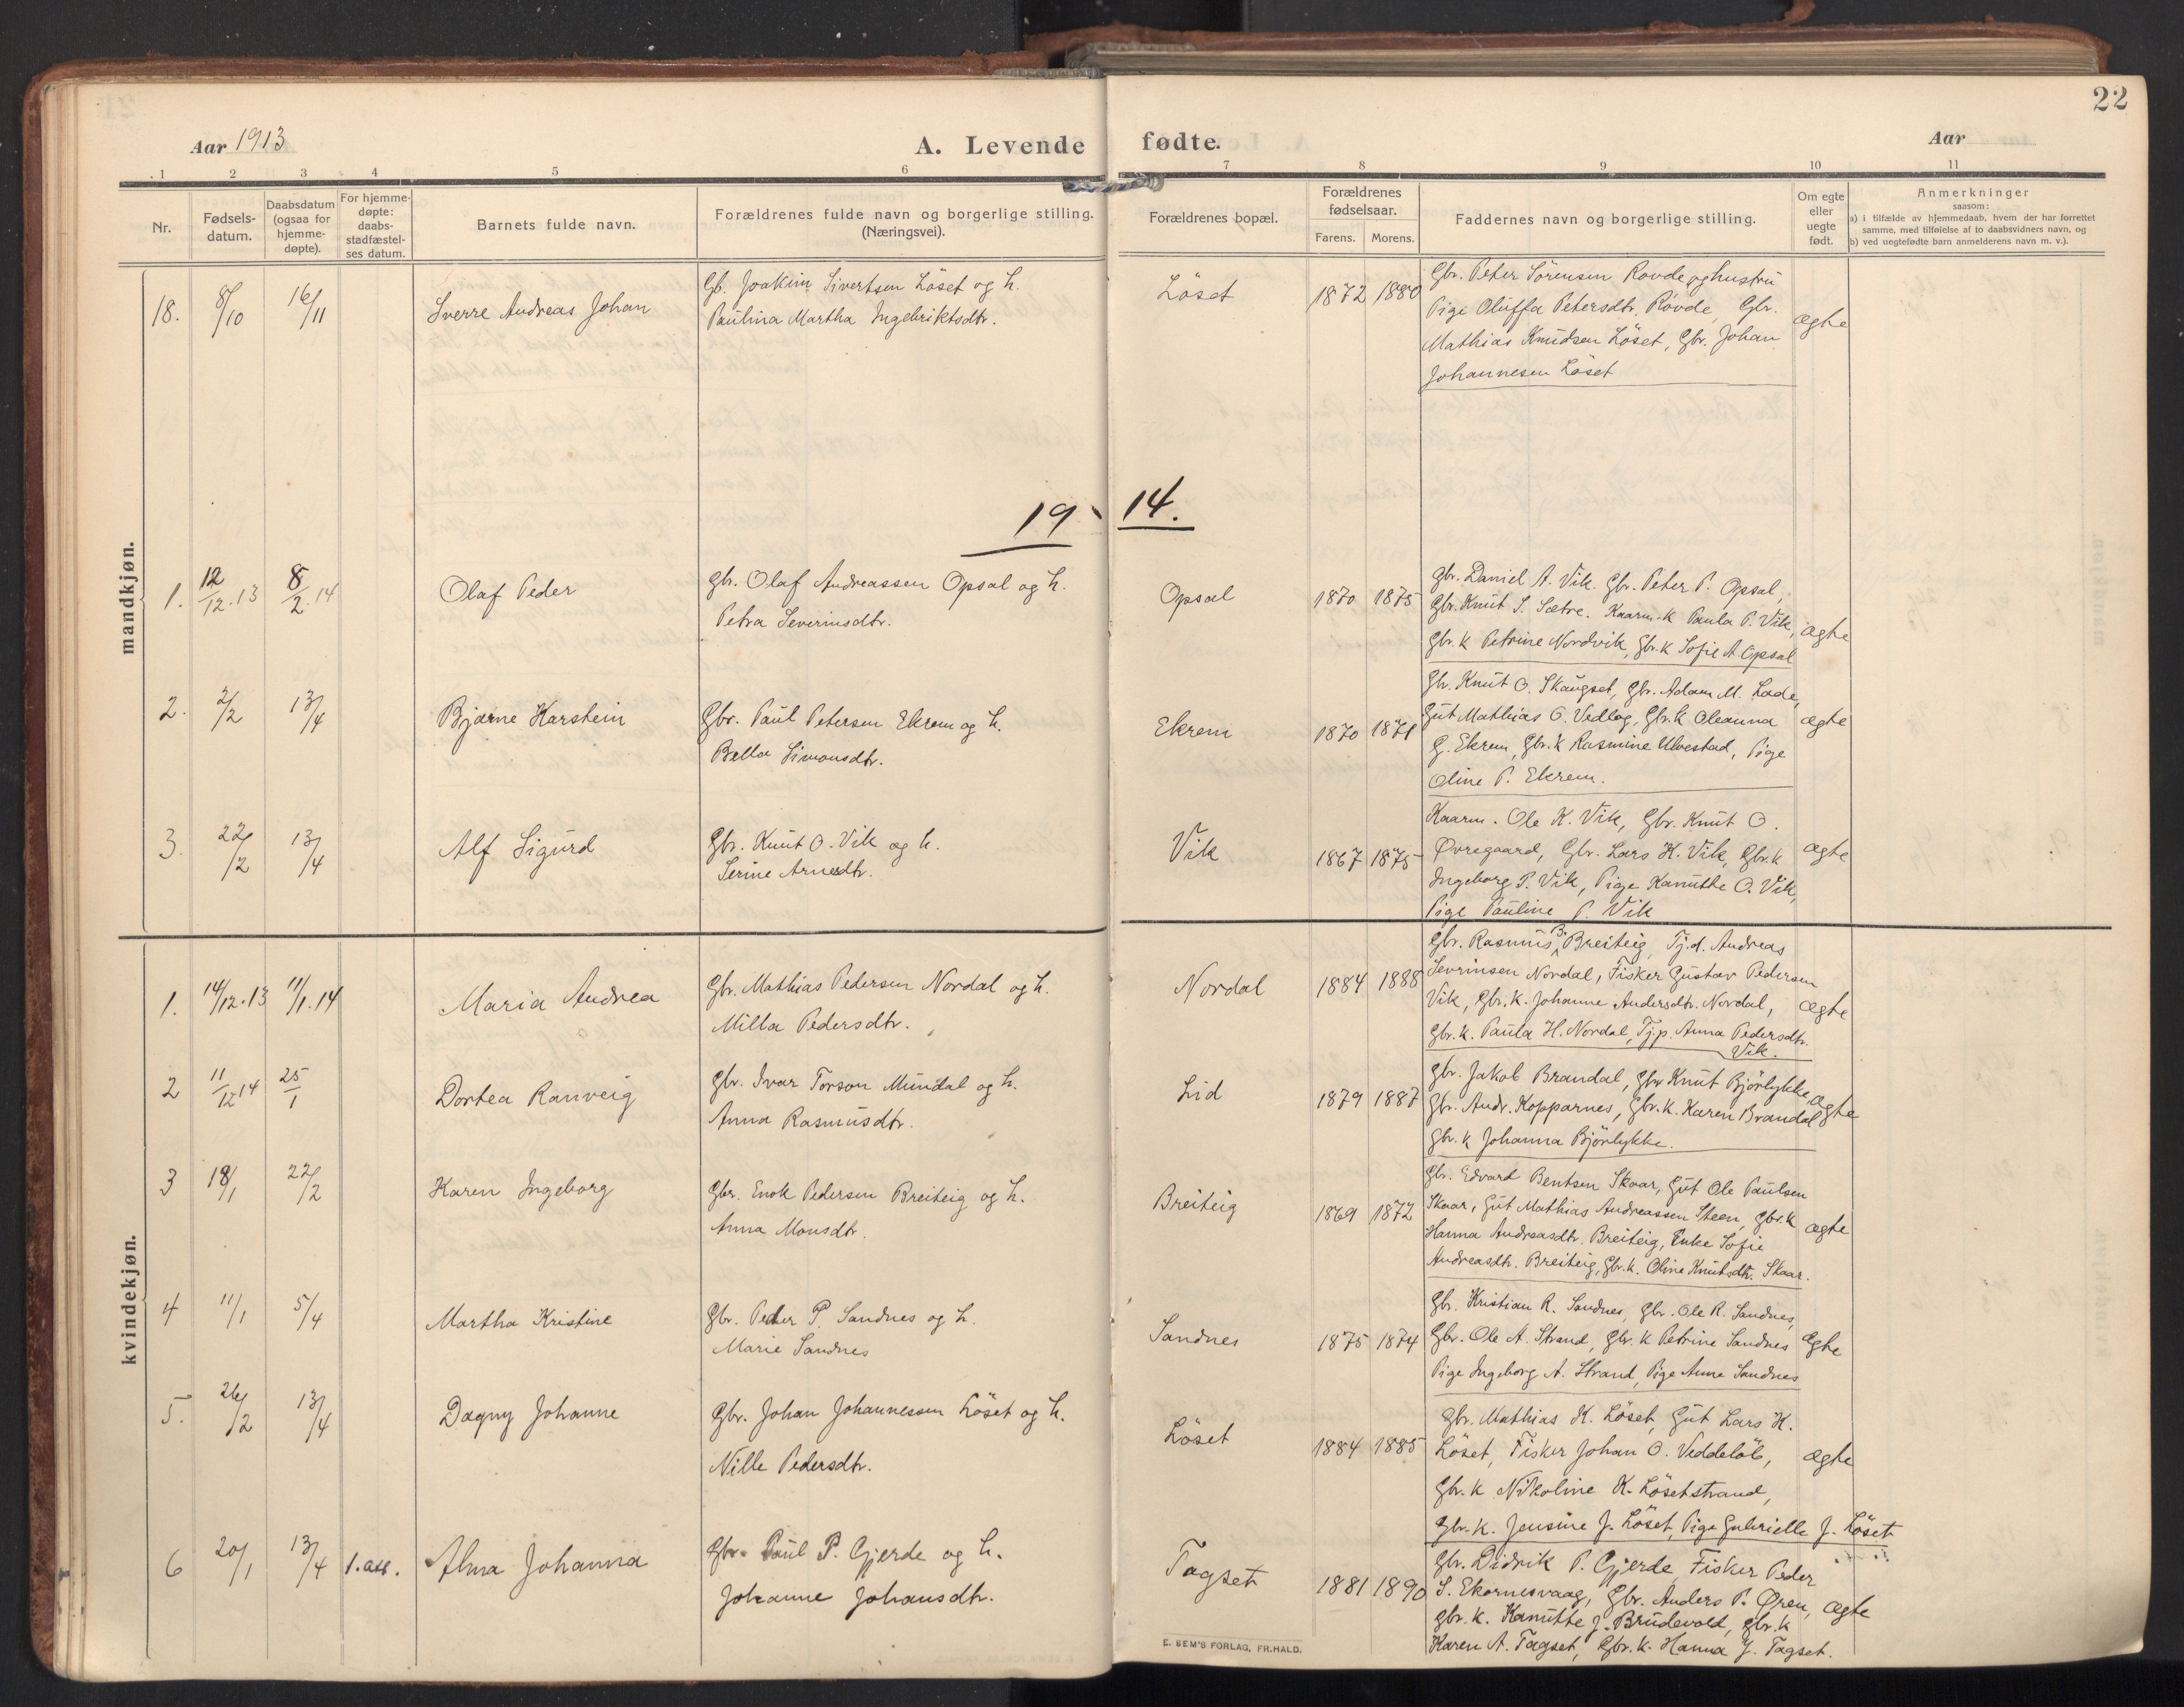 22
Aar 1913
A. Levende fødte.
Aar
1 2 3 4 5 6 7 8 9 10 11
Nr.
Fødsels-
datum.
Daabsdatum
(ogsaa for
hjemme-
døpte).
For hjemme-
døpte:
daabs-
stadfæstel-
ses datum.
Barnets fulde navn.
Forældrenes fulde navn og borgerlige stilling.
(Næringsvei).
Forældrenes bopæl.
Forældrenes
fødselsaar.
Farens. Morens.
Faddernes navn og borgerlige stilling.
Om egte
eller
uegte
født.
Anmerkninger
saasom:
a) i tilfælde av hjemmedaab, hvem der har forrettet
samme, med tilføielse av to daabsvidners navn, og
b) ved uegtefødte barn anmelderens navn m. v.).
mandkjøn.
18. 8/10 16/11 Sverre Andreas Johan
Gb. Joakim Sivertsen Löset og h.
Paulina Martha Ingebriktsdtr.
Löset 1872 1880
Gbr. Peter Sörensen Rovde og hustru
Pige Oluffa Petersdtr. Rovde, Gbr.
Mathias Knudsen Löset, Gbr. Johan
Johannesen Löset
ægte
19 14.
1. 12/12.13 8/2.14 Olaf Peder
Gbr. Olaf Andreassen Opsal og h.
Petra Severinsdtr.
Opsal 1870 1875
Gbr. Daniel A. Vik. Gbr. Peter P. Opsal,
Gbr. Knut S. Sætre. Kaarm.k Paula P. Vik,
Gbr. k Petrine Nordvik, Gbr. k Sofie A. Opsal
ægte
2. 2/2 13/4 Bjarne Karstein
Gbr. Paul Petersen Ekrem og h.
Bella Simonsdtr.
Ekrem 1870 1871
Gbr. Knut O. Skaugset, Gbr. Adam M. Lade,
Gut Mathias O. Vedlog, Gbr. k Oleanna
G. Ekrem, Gbr. k Rasmine Ulvestad, Pige
Oline P. Ekrem.
ægte
3. 22/2 13/4 Alf Sigurd
Gbr. Knut O. Vik og h.
Serine Arnesdtr.
Vik 1867 1875
Kaarm. Ole K. Vik, Gbr. Knut O.
Øvregaard, Gbr. Lars H. Vik, Gbr. k
Ingeborg P. Vik, Pige Kanutte O. Vik,
Pige Pauline P. Vik
ægte
kvindekjøn.
1. 14/12.13 11/1.14 Maria Andrea
Gbr. Mathias Pedersen Nordal og h.
Milla Pedersdtr.
Nordal 1884 1888
Gbr. Rasmus B. Breiteig, Tj.d. Andreas
Sevrinsen Nordal, Fisker Gustav Pedersen
Vik, Gbr. k. Johanne Andersdtr. Nordal,
Gbr. k. Paula H. Nordal, Tj.p. Anna Pedersdtr.
Vik.
ægte
2 11/12 14 25/1 Dortea Ranveig
Gbr. Ivar Torson Mundal og h.
Anna Rasmusdtr.
Lid 1879 1887
Gbr. Jakob Brandal, Gbr Knut Björlykke,
Gbr. Andr. Kopparnes, Gbr. k. Karen Brandal
Gbr. k Johanna Björlykke.
ægte
3 18/1 22/2 Karen Ingeborg
Gbr. Enok Pedersen Breiteig og h.
Anna Monsdtr.
Breiteig 1869 1872
Gbr. Edvard Bentsen Skaar, Gut Ole Paulsen
Skaar, Gut Mathias Andreassen Steen, Gbr. k
Hanna Andreasdtr. Breiteig, Enke Sofie
Andreasdtr. Breiteig, Gbr. k. Oline Knutsdtr. Skaar.
ægte
4 11/1 5/4 Martha Kristine
Gbr. Peder P. Sandnes og h.
Marie Sandnes
Sandnes 1875 1874
Gbr. Kristian R. Sandnes, Gbr. Ole R. Sandnes,
Gbr. Ole A. Strand, Gbr. k Petrine Sandnes
Pige Ingeborg A. Strand, Pige Anne Sandnes
ægte
5. 26/2 13/4 Dagny Johanne
Gbr. Johan Johannessen Löset og h.
Nille Pedersdtr.
Löset 1884 1885
Gbr. Mathias K. Löset, Gut Lars K.
Löset, Fisker Johan O. Veddeløb,
Gbr. k Nikoline K. Lösetstrand,
Gbr. k. Jensine J. Löset, Pige Gabrielle J. Löset
ægte
6 20/1 13/4 Alma Johanna
Gbr. Paul P. Gjerde og h.
Johanne Johansdtr.
Tagset 1881 1890
Gbr. Didrik P. Gjerde, Fisker Peder
S. Ekornesvaag, Gbr. Anders P. Øren,
Gbr. k. Kanutte J. Brudevold, Gbr. k
Karen A. Tagset, Gbr. k. Hanna J. Tagset.
ægte
E. SEM'S FORLAG, FR.HALD.